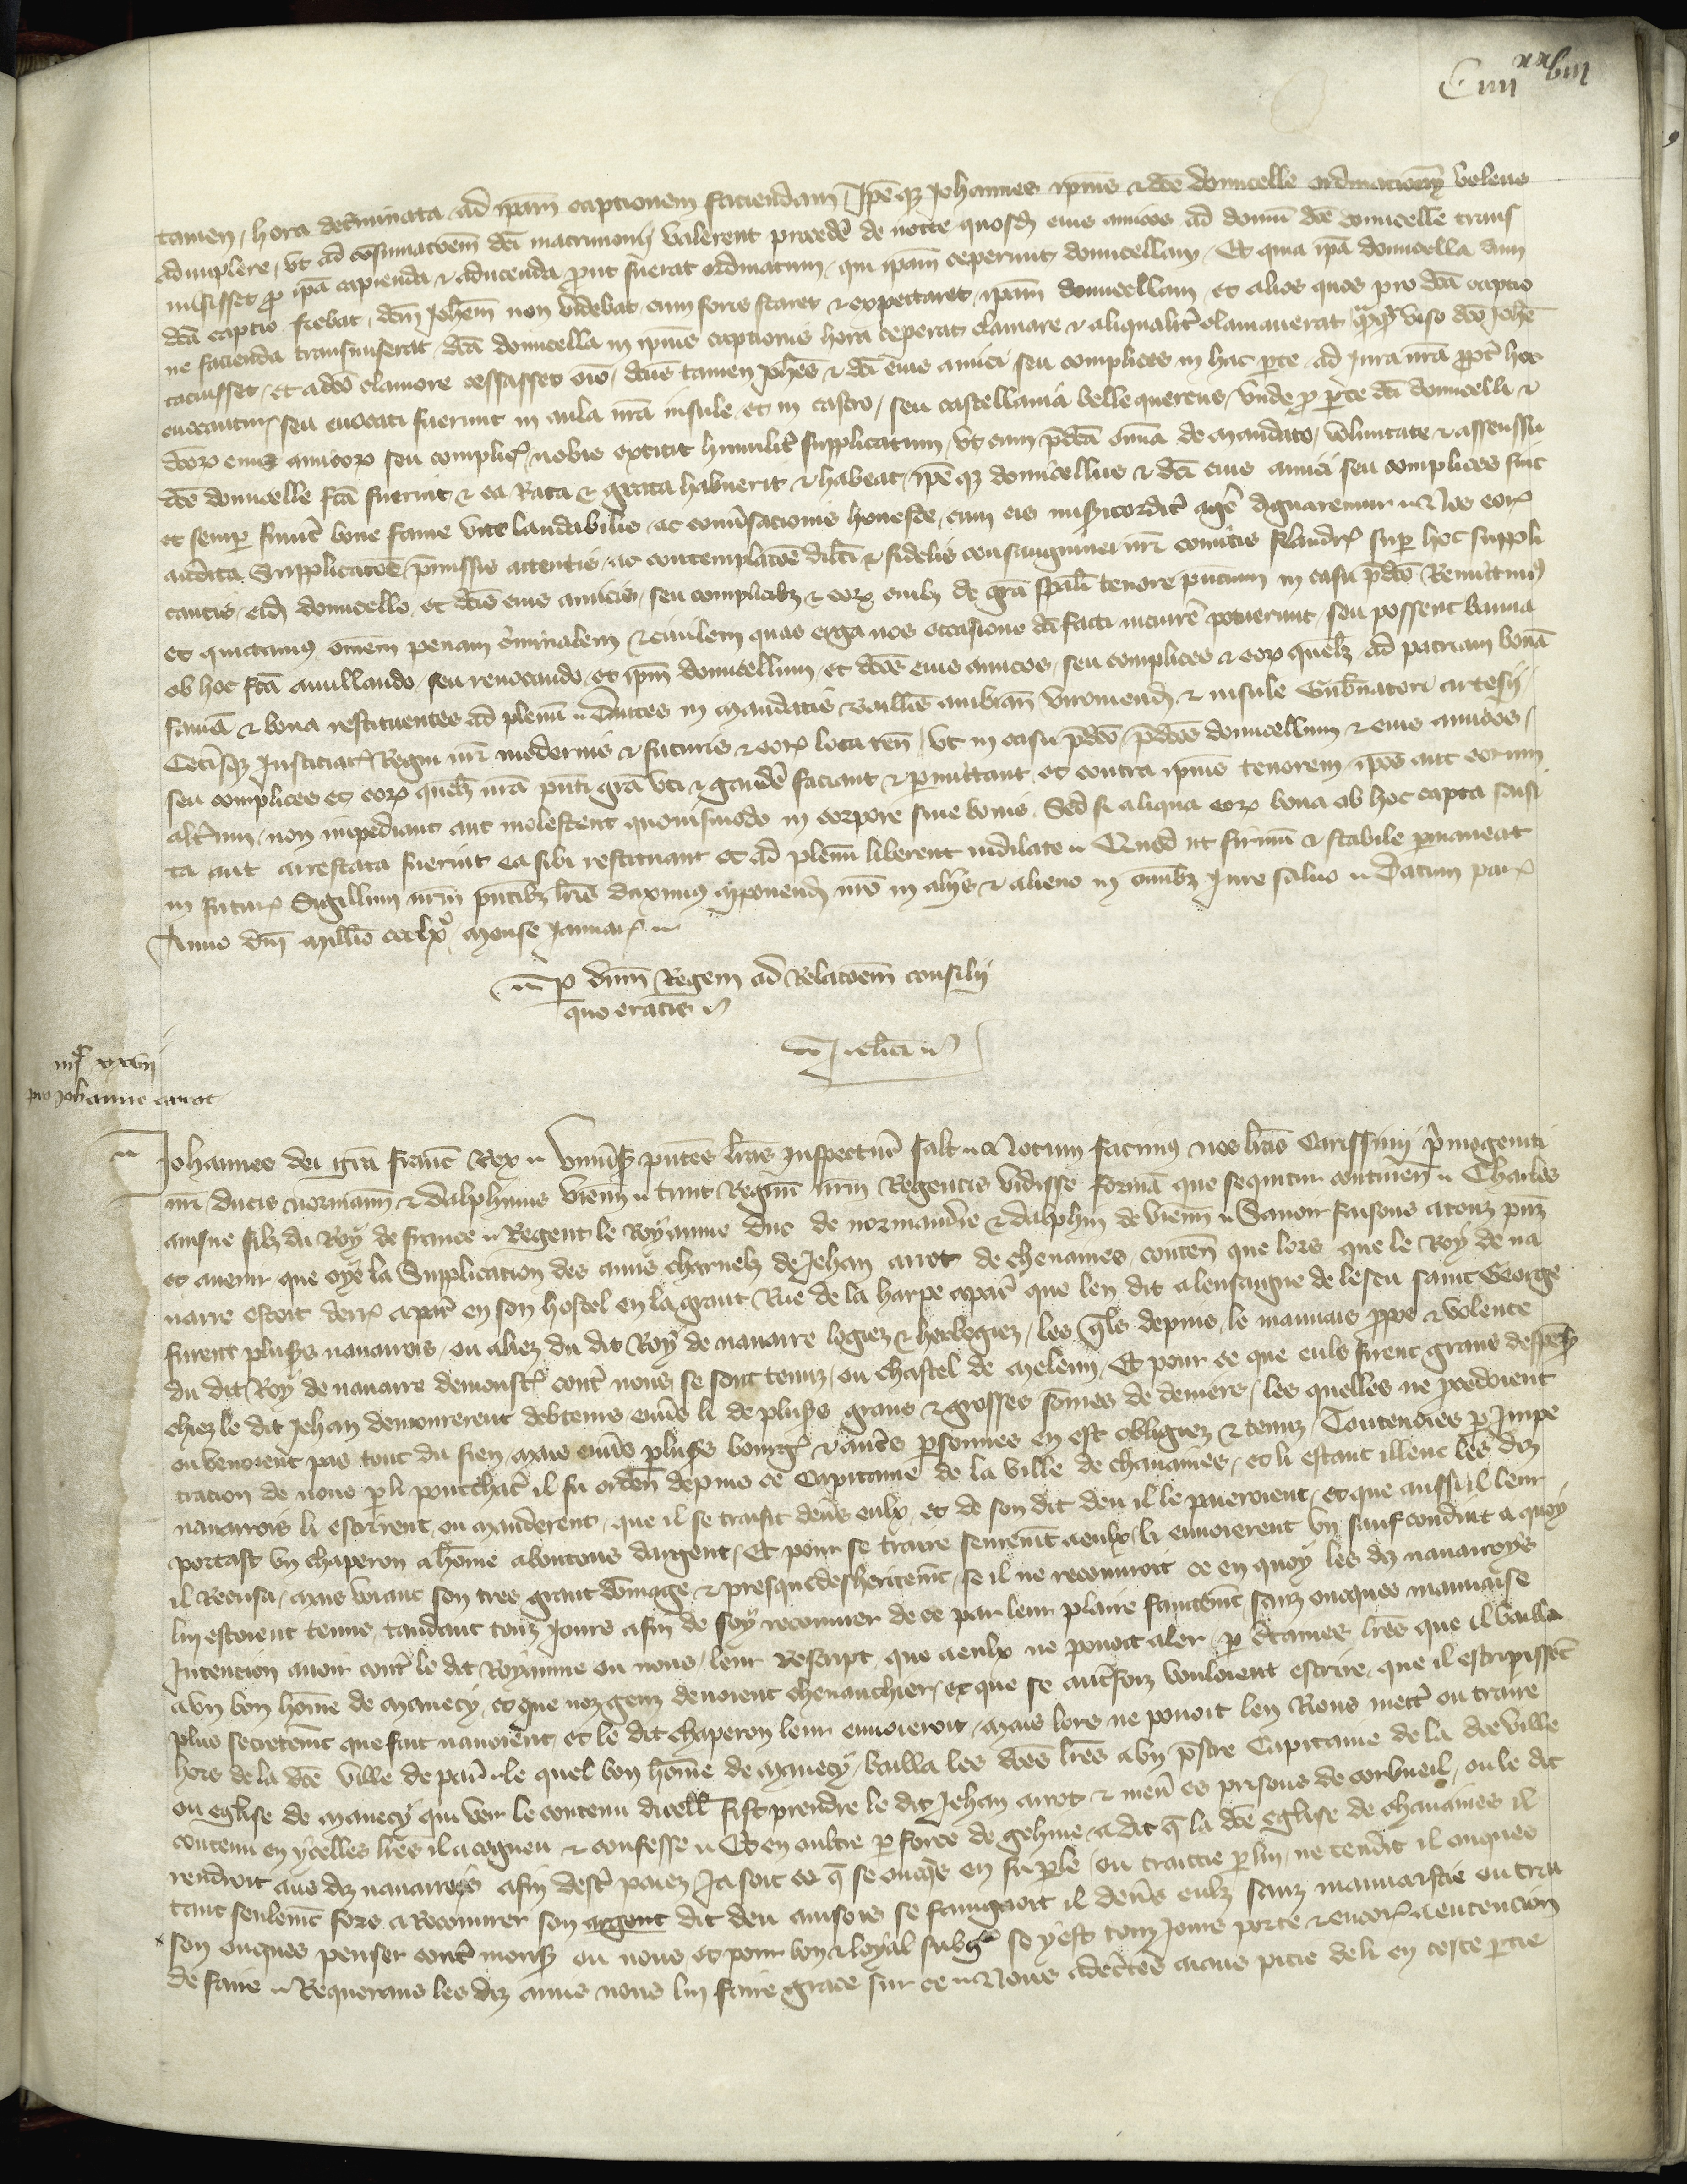 C iiii xx viii
tamen, hora det'minata ad ip̄am captionem faciendam Ip̄e q3 Johannes ip̄ius & dc̄e domicelle ordinacionem volens
adimplere, vt ad cōsumacōem dc̄i matrimonij valerent procedē de nocte quosd' eius amicos ad domū dc̄e domicelle trans
misisset p̄ ip̄a capienda & aducenda prout fuerat ordinatum, qui ip̄am ceperunt domicellam, Et quia ip̄a domicella dum
dc̄a captio fiebat, dc̄m Joh'em non videbat cum foris staret & expectaret ip̄am domicellam et alios quos pro dc̄a captio
ne facienda transmiserat dc̄a domicella in ip̄ius captionis hora ceperat clamare & aliqualit' clamauerat viso dc̄o Joh'e
tacuisset, et a dc̄o clamore cessasset om̄o, dc̄us tamen Joh'es & dc̄i eius amici seu complices in hac p̄te ad iura nr̄a p̄pt' hoc
euocantur seu euocati fuerunt in aula nr̄a insule et in castro, seu castellania bellequercus, vnde p̄ p̄te dc̄i domicelli &
dc̄or' eius amicor' seu complic' nobis extitit humilit' supplicatum, vt cum p̄dc̄a om̄ia de mandato, voluntate & assensu
dc̄e domicelle fc̄a fuerint & ea rata & grata habuerit & habeat, ip̄e q3 domicellus & dc̄i eius amici seu complices sint
et semp̄ fuerint bone fame vite laudabilis ac conu'sacionis honeste, cum eis mis'icordit' agē dignaremur Nos eor'
audita supplicacōe p̄missis attentis ac contemplacōe dilc̄i & fidelis consanguinei nr̄i comitis flandr' sup̄ hoc suppli
cantis, eid' domicello et dc̄is eius amicis, seu complicib3 & eor' cuilib3 de gr̄a sp̄ali tenore p̄ncium in casu p̄dc̄o remittim9
et quittam9 om̄em penam c'minalem & ciuilem quas erga nos occasione dc̄i facti incurrē potuerunt, seu possent banna
ob hoc fc̄a anullando seu reuocando, et ip̄m domicellum, et dc̄os eius amicos, seu complices & eor' quēlib3 ad patriam bonā
famā & bona restituentes ad plenū Dantes in mandatis baill'is ambian' viromend' & insule Gub'natori artesij,
Cet'isq3 Justiciar' Regni nr̄i modernis & futuris & eor' loca ten', vt in casu p̄dc̄o, p̄dc̄os domicellum & eius amicos,
seu complices et eor' quēlib3 nr̄a p̄nti gr̄a vti & gaudē faciant & p̄mittant, et contra ip̄ius tenorem ip̄os aut eorum
alt'um, non impediant aut molestent quouismodo in corpore siue bonis. Sed si aliqua eor' bona ob hoc capta saisi
ta aut arrestata fuerint ea sibi restituant et ad plenū liberent indilate Quod ut firmū & stabile p̄maneat
in futur' Sigillum nr̄m p̄ntib3 lr̄is duxim9 apponend' nr̄o in alijs & alieno in omnib3 iure saluo Datum par'
Anno dn̄i mill'io ccclxº mense Januar'
p̄ dn̄m Regem ad relacōem consilij
quo eratis
J. Clici
iiijᶜ xxviij
pro Johanne arrot
Johannes dei gr̄a franc' Rex Vniu'sis p̄ntes lr̄as inspectur' salt' Notum facim9 nos lr̄as Carissimi p'mogeniti
nr̄i ducis normann' & dalphinus vienn' tunc Regnū nr̄m Regentis vidisse formā que sequitur continen' Charles
ainsne filz du Roy de france Regent le Royaume duc de normandie & dalphin de vienn' Sauoir faisons a touz p̄nz
et auenir que oye la supplicacion des amis charnelz de Jehan arrot de cheuaines, conten' que lors que le Roy de na
uarre estoit derr' a par' en son hostel en la grant Rue de la harpe a par' que len dit a lensaigne de lescu saint George
furent plus's nauarrois, ou aliez du dit Roy de nauarre logiez & herbegiez, les q̄ls depuis le mauuais ppos & volente
du dit Roy de nauarre demonstr' contr' nous se sont tenuz, ou chastel de meleun, Et pour ce que eulx firent grans despens
chiez le dit Jehan demourerent debteurs enu's li de plus's grans & grosses sōmes de deniers, les quelles ne p̄cedoient
ou venoient pas tout du sien, mais enu's plus's bourg' & autr's p̄sonnes en est obligiez & tenuz, Toutesuoies p̄ Impe
tracion de nous p̄ li pourchac' il fu orden' depuis ce Capitaine de la ville de chauaines, et li estant illeuc les diz
nauarrois li escrirent, ou manderent, que il se traisit deu's eulx et de son dit deu il le paieroient, et que aussi il leur
portast vn chaperon a hōme a boutons dargent, Et pour se traire seuremēt a eulx li enuoierent vn saufconduit a quoy
il Recusa, mais voiant son tres grant dōmage & presque desheritemēt, se il ne recouuroit ce en quoy les diz nauarroys
lui estoient tenus tandant touz Jours afin de soy recouurer de ce par leur plaire faintemēt sanz onques mauuaise
Intencion auoir contr' le dit Royaume ou nous, leur Rescript que a eulx ne pouoit aler, p̄ c'taines lr̄es que il bailla
a vn bon hōme de manecy, et que noz genz deuoient cheuauchier, et que se autrefoiz vouloient escrire, que il escripsissēt
plus secretemēt que fait nauoient, et le dit chaperon leur enuoieroit, mais lors ne pouoit len Riens mettr' ou traire
hors de la dc̄e ville de par' le quel bon hōme de manecy, bailla les dc̄es lr̄es a vn p̄stre Capitaine de la dc̄e ville
ou eglise de manecy qui veu le contenu dicelles fist prendre le dit Jehan arrot & men' es prisons de corbueil, ou le dit
contenu en ycelles lr̄es il a cogneu & confesse Et en oultre p̄ force de gehine, a dit q̄ la dc̄e eglise de chauaines il
rendroit aus diz nauarrois afin destr' paiez, Ja soit ce q̄ se onq̄s en fu p̄le, ou traittie p̄ lui, ne tendit il onques
tant seulemēt fors a Recouurer son argent dit deu ainsois se faingnoit il deu's eulx sanz mauuaistie ou trai
son onques penser contr' mons' ou nous, et pour bon & loyal subg' se y est touz Jours porte & encor' a entencion
de faire Requerans les diz amis nous lui faire grace sur ce Nous adec'tes aians pitie de li en ceste p̄tie